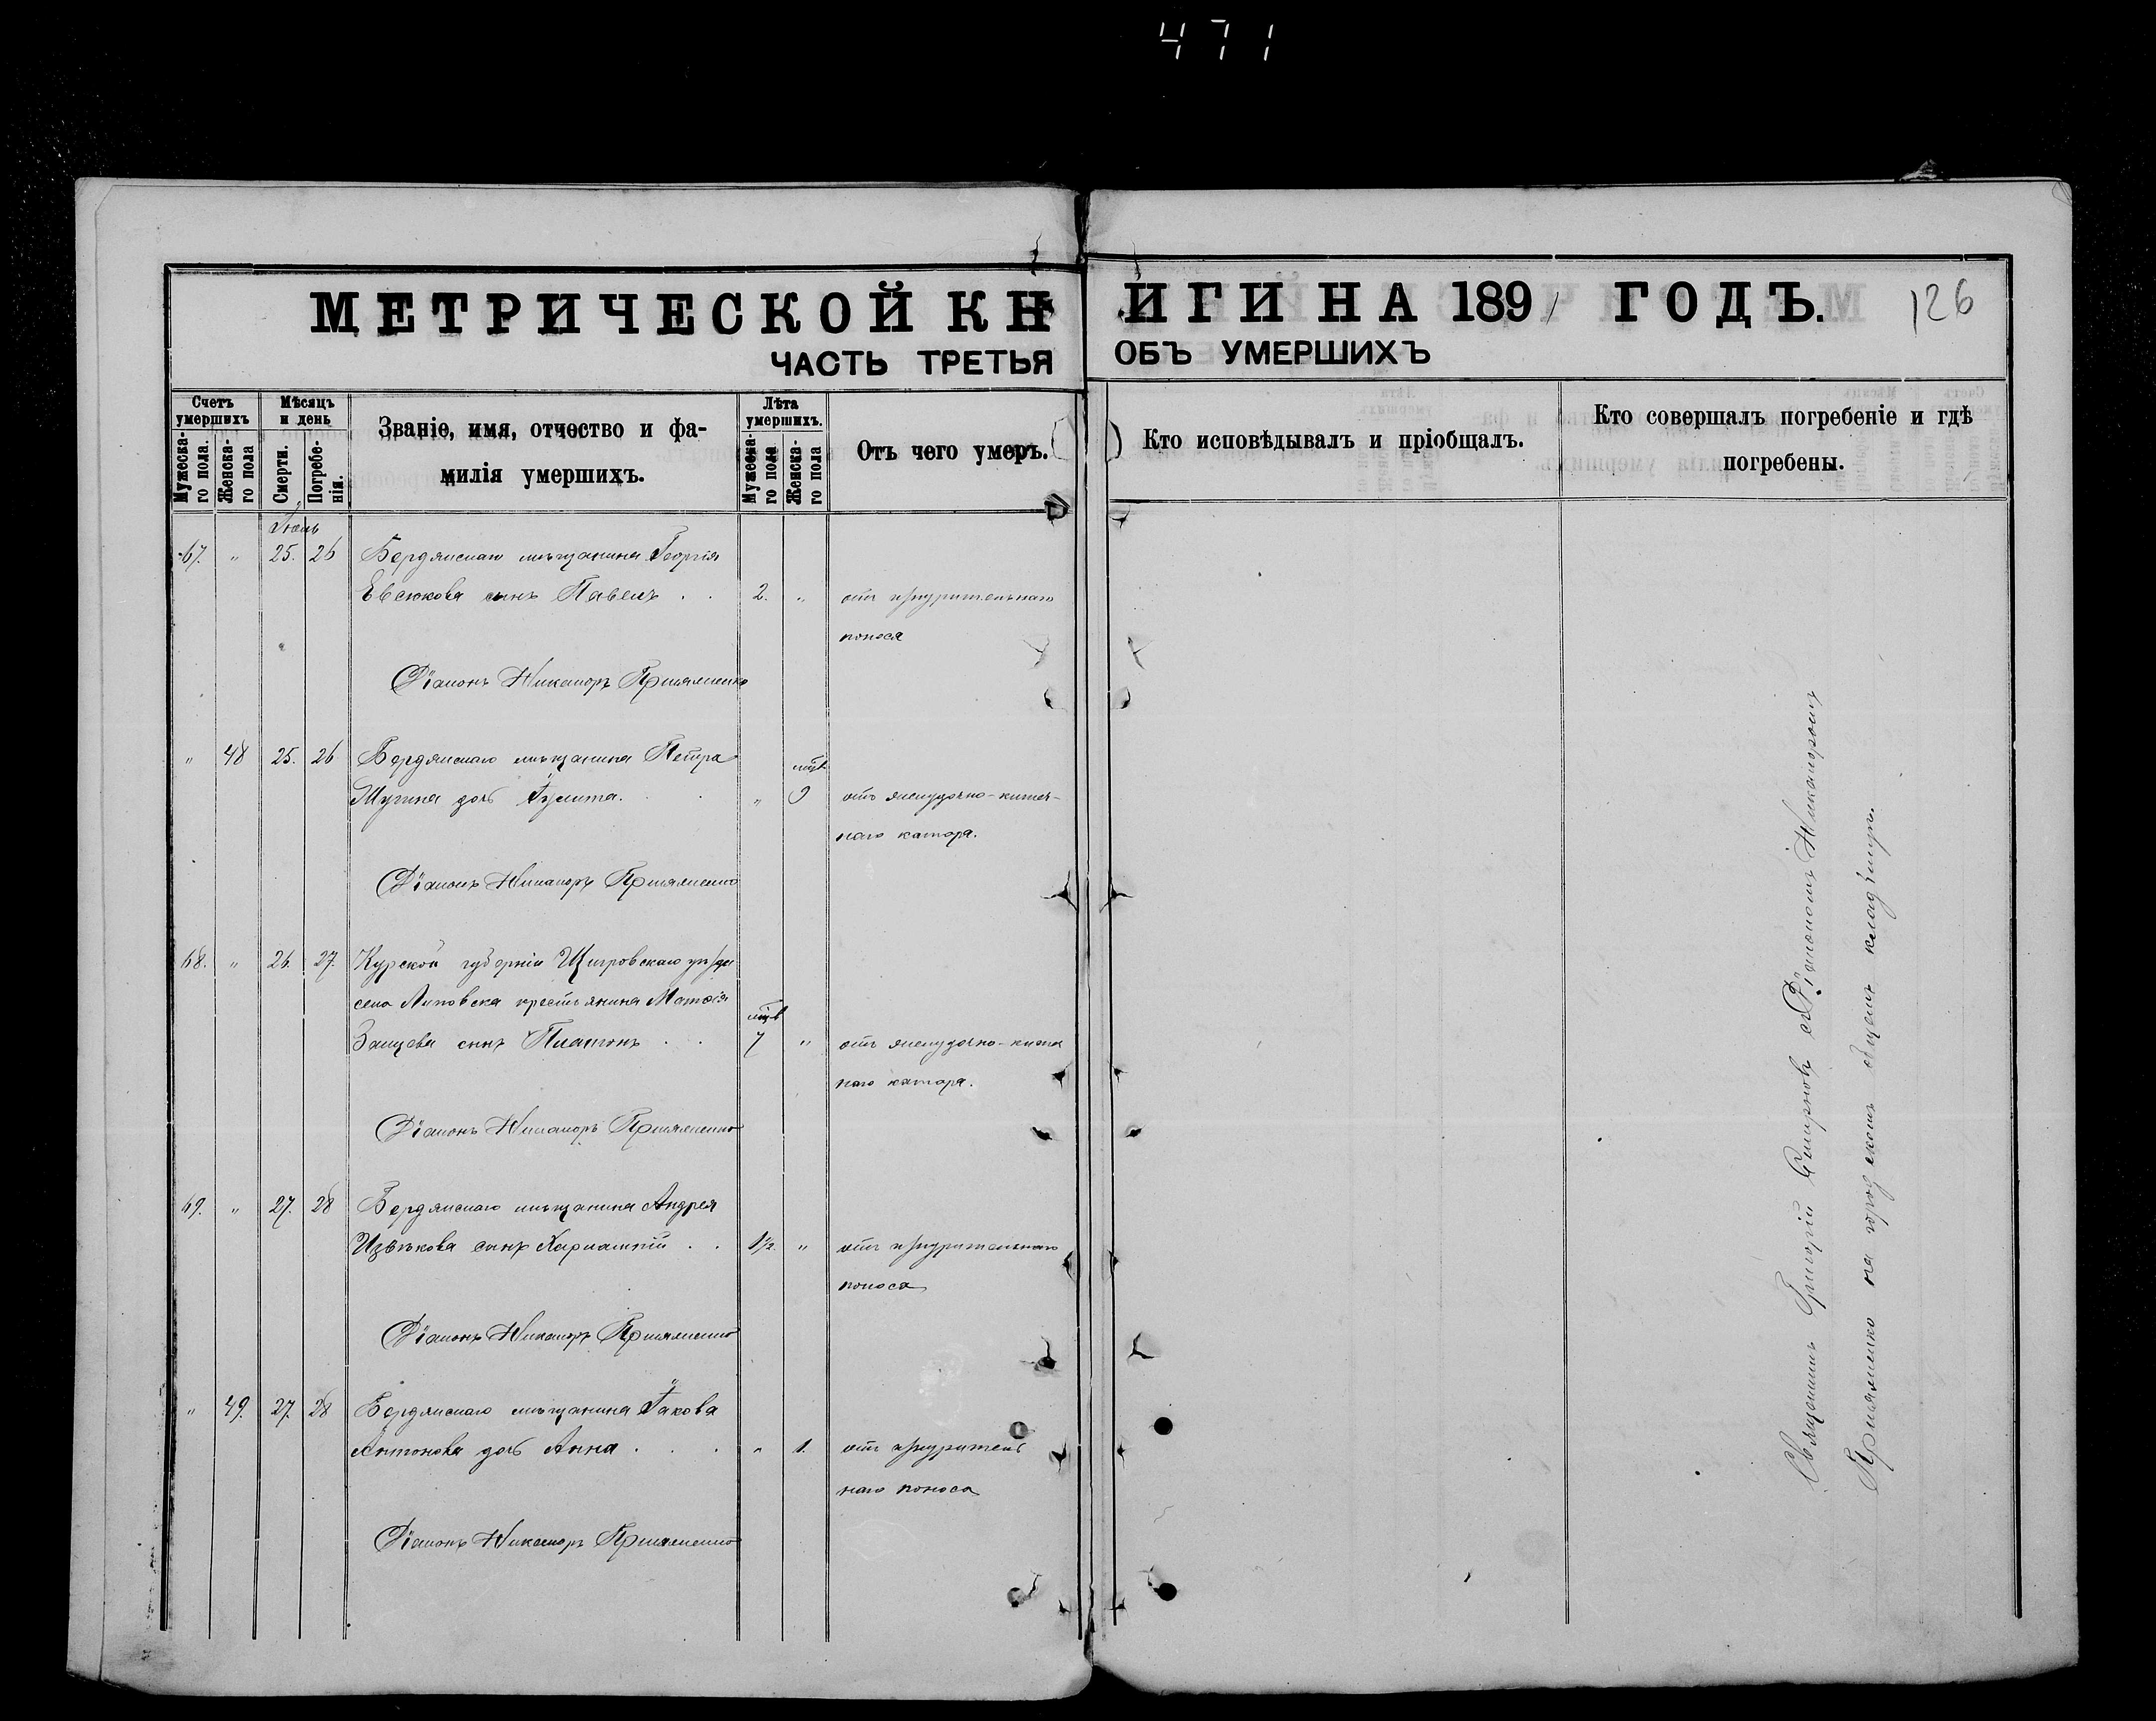 471
МЕТРИЧЕСКОЙ КНИГИ НА 1891 ГОДЪ.
126
ЧАСТЬ ТРЕТЬЯ ОБЪ УМЕРШИХЪ
Счетъ умершихъ
Мужеска-го пола.
Женска-го пола
Мѣсяцъ и день
Смерти.
Погребе-нія.
Званіе, имя, отчество и фа-
милія умершихъ.
Лѣта умершихъ.
Мужеска-го пола
Женска-го пола
Отъ чего умеръ.
Кто исповѣдывалъ и пріобщалъ.
Кто совершалъ погребеніе и гдѣ
погребены.
67. " 25. 26 Бердянскаго мѣщанина Георгія
Евсюкова сынъ Павелъ . . 2. " отъ изнурительнаго
поноса
Діаконъ Никаноръ
" 48 25. 26 Бердянскаго мѣщанина Петра
мѣс.
дочь Іулита. . . " 9 отъ желудочно-кишеч-
наго катара.
Діаконъ Никаноръ
68. " 26. 27. Курской губерніи Щигровскаго уѣзда
села Липовска крестьянина Матѳія
мѣс.
Заицева сынъ Платонъ . . 7 " отъ желудочно-кишеч
наго катара.
Діаконъ Никаноръ
69. " 27. 28 Бердянскаго мѣщанина Андрея
Извѣкова сынъ Харлампій . . 1½. " отъ изнурительнаго
поноса
Діаконъ Никаноръ
" 49. 27. 28 Бердянскаго мѣщанина Іакова
Антонова дочь Анна . . . " 1. отъ изнуритель
наго поноса
Діаконъ Никаноръ
Священникъ Григорій Смирновъ съ Діакономъ Никаноромъ
на городскомъ общемъ кладбищѣ.